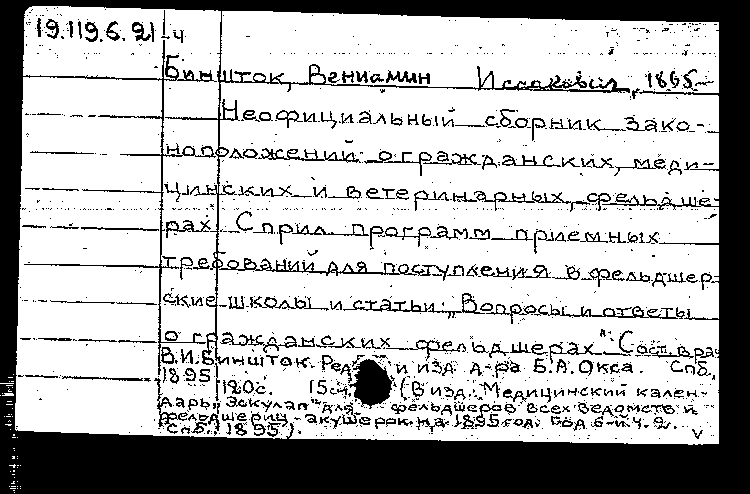 19.119.6.21-4
Биншток, Вениамин Исаакович, 1865-
Неофициальный сборник зако-
ноположений о гражданских, меди-
цинских и ветеринарных фельдше-
рах. С прил. программ приемных
требований для поступления в фельдшер-
ские школы и статьи: „Вопросы и ответы
о гражданских фельдшерах". Сост. врач
В.И. Биншток. Ред. и изд. д-ра Б.А. Окса. Спб,
1895
180с. 15см. (В изд.: Медицинский кален-
дарь „Эскулап" для фельдшеров всех ведомств и
фельдшериц-акушерок на 1895 год. Год 6-й. Ч. 2.
Спб., 1895).
v